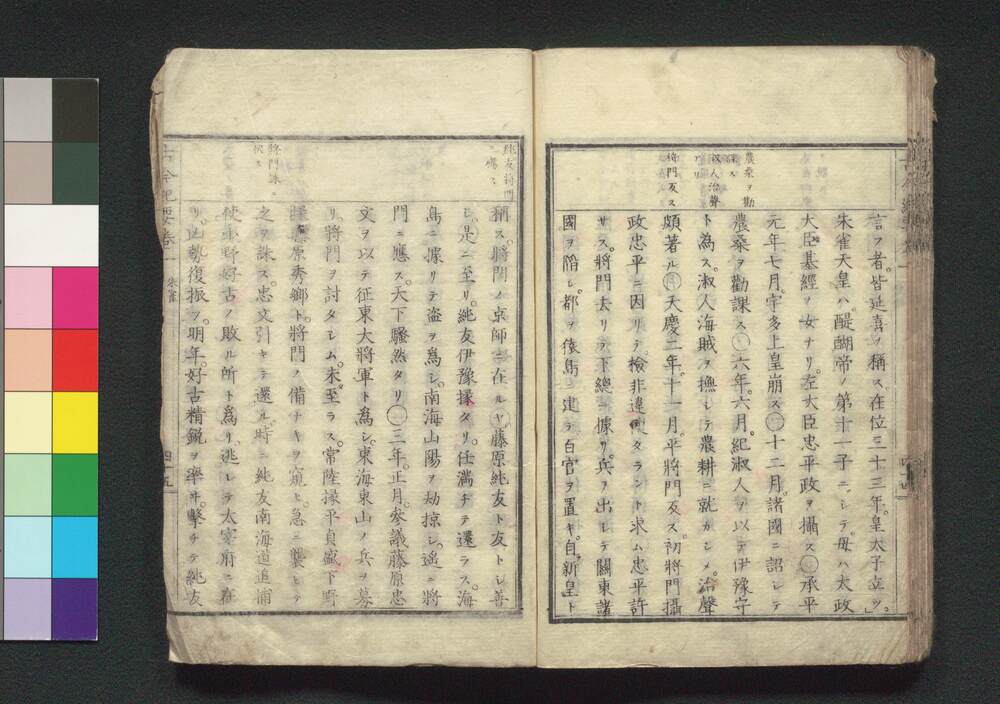 農桒ヲ勸
課ス
淑人治聲
アリ
将門反ス
言フ者。皆延喜ヲ稱ス。在位三十三年。皇太子立ツ。
朱雀天皇ハ。醍醐帝ノ第十一子ニシテ。母ハ太政
大臣基經ノ女ナリ。左大臣忠平政ヲ攝ス○承平
元年七月。宇多上皇崩ス○十二月。諸國ニ詔シテ
農桒ヲ勸課ス○六年。六月。紀淑人ヲ以テ伊豫守
ト為ス。淑人海賊ヲ撫シテ農耕ニ就カシメ。治聲
頗著ル○天慶二年。十一月。平將門反ス。初將門攝
政忠平ニ因リテ。檢非違使タラント求ム忠平許
サス。將門去リテ下總ニ據リ。兵ヲ出シテ關東諸
國ヲ陷レ。都ヲ猿島ニ建テ百官ヲ置キ。自新皇ト
純友将門
ニ應ス
将門誅ニ
伏ス
稱ス。將門ノ京師ニ在ルヤ。藤原純友ト友トシ善
シ。是ニ至リ。純友伊豫掾タリ。任満チテ還ラス。海
島ニ據リテ盗ヲ為シ。南海山陽ヲ劫掠シ。遥ニ將
門ニ應ス。天下騒然タリ○三年。正月。參議藤原忠
文ヲ以テ征東大將軍ト為シ。東海東山ノ兵ヲ募
リ。將門ヲ討タレム。未至ラス。常陸掾平貞盛下野
掾藤原秀郷ト。將門ノ備ナキヲ窺ヒ急ニ襲ヒテ
之ヲ誅ス。忠文引キテ還ル。時ニ純友南海道追捕
使小野好古ノ敗ル所ト為リ。逃レテ太宰府ニ在
リ。凶勢復振フ。明年。好古精鋭ヲ率ヰ。擊チテ純友
古今紀要卷一
朱雀
四十五